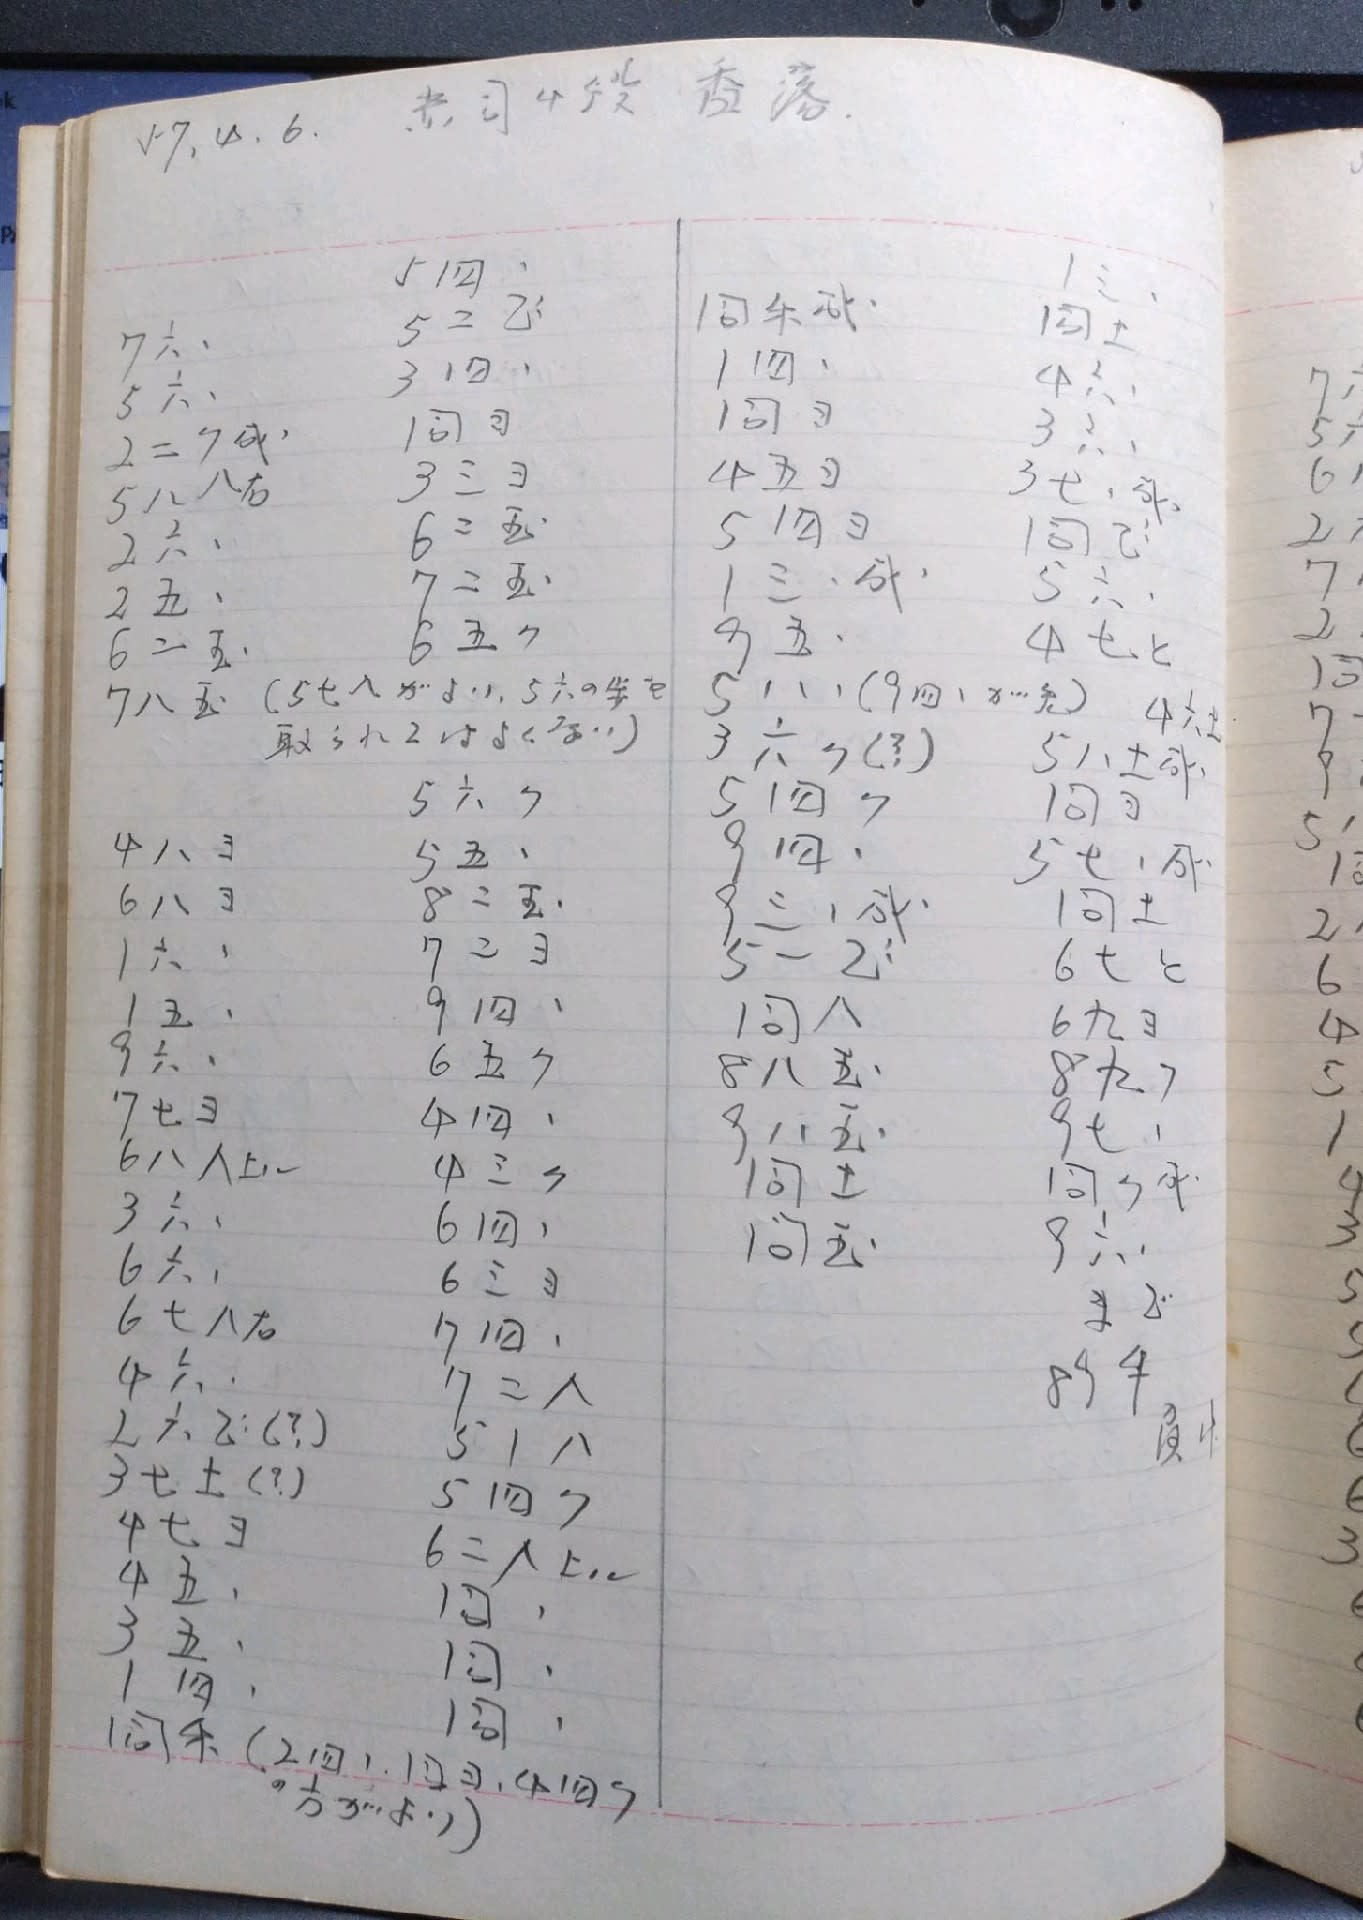 57.4.6. 赤司4段 香落.
5四、
7六、 5二ヒ
5六、 3四、
2二ク成、 同ヨ
5八 八右 3三ヨ
2六、 6二玉
2五、 7二玉
6二玉 6五ク
7八玉 (5七人がよい、5六の歩を
取られてはよくない)
5六ク
4八ヨ 5五、
6八ヨ 8二玉
1六、 7二ヨ
1五、 9四、
9六、 6五ク
7七ヨ 4四、
6八人上ル 4三ク
3六、 6四、
6六、 6三ヨ
6七八右 7四、
4六、 7二人
2六ヒ(?) 5一八
3七土(?) 5四ク
4七ヨ 6二人上ル
4五、 同、
3五、 同、
1四、 同、
同禾 (2四、同ヨ、4四ク
の方がよい)
1三、
同禾成、 同土
1四、 4六、
同ヨ 3六、
4五ヨ 3七、成、
5四ヨ 同ヒ
1三、成、 5六、
9五、 4七と
5八、(9四、が先) 4六土
3六ク(?) 5八土成
5四ク 同ヨ
9四、 5七、成
9三、成、 同土
5一ヒ 6七と
同八 6九ヨ
8八玉 8九ク
9八玉 9七、
同土 同ク成
同玉 9六、
まで
89手
負け